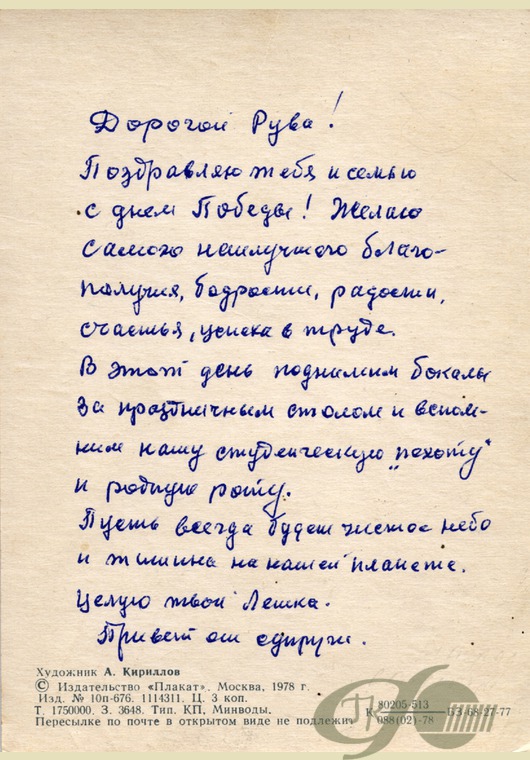 Дорогой Рува!
Поздравляю тебя и семью
с днем Победы! Желаю
самого наилучшего благо-
получия, бодрости, радости,
счастья, успеха в труде.
В этот день поднимим бокалы
за праздничным столом и вспом-
ним нашу студенческую „пехоту“
и родную роту.
Пусть всегда будет чистое небо
и тишина на нашей планете.
Целую твой Лешка.
Привет от супруги.
Художник А. Кириллов
© Издательство «Плакат». Москва, 1978 г.
Изд. № 10п-676. 1114311. Ц. 3 коп.
Т. 1750000. З. 3648. Тип. КП, Минводы.
Пересылке по почте в открытом виде не подлежит
К 80205-513 / 088(02)-78 БЗ-68-27-77